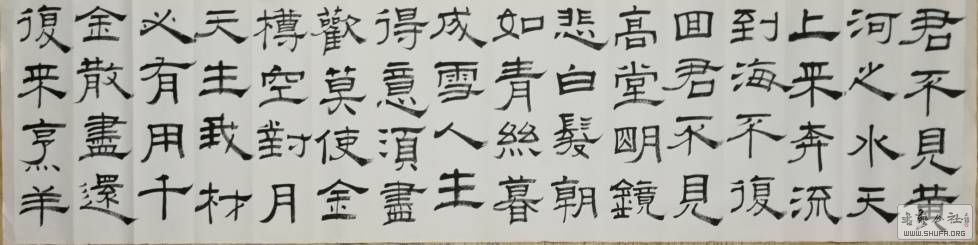 君不見黄
河之水天
上来奔流
到海不復
回君不見
高堂明鏡
悲白髮朝
如青絲暮
成雪人生
得意須盡
歡莫使金
樽空對月
天生我材
必有用千
金散盡還
復来烹羊
WWW.SHUFA.ORG